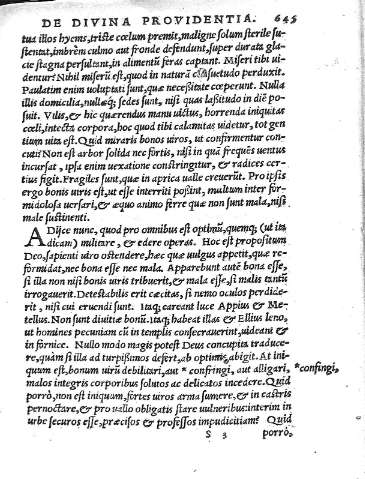 DE DIVINA PROVIDENTIA. 645
tua illos hyems, triste cœlum premit, maligne solum sterile su-
stentat, imbrem culmo aut fronde defendunt, super durata gla-
cie stagna persultant, in alimentū feras captant. Miseri tibi ui-
dentur? Nihil miserū est, quod in naturā cōsuetudo perduxit.
Paulatim enim uoluptati sunt, quæ necessitate cœperunt. Nulla
illis domicilia, nullæq; sedes sunt, nisi quas lassitudo in diē po-
suit. Vilis, & hic quærendus manu uictus, horrenda iniquitas
cœli, intecta corpora, hoc quod tibi calamitas uidetur, tot gen
tium uita est. Quid miraris bonos uiros, ut confirmentur con-
cuti? Non est arbor solida nec fortis, nisi in quā frequēs uentus
incursat, ipsa enim uexatione constringitur, & radices cer-
tius figit. Fragiles sunt, quæ in aprica ualle creuerūt. Pro ipsis
ergo bonis uiris est, ut esse interriti possint, multum inter for-
midolosa uersari, & æquo animo ferre quæ non sunt mala, nisi
male sustinenti.
ADijce nunc, quod pro omnibus est optimū, quemq; (ut ita
dicam) militare, & edere operas. Hoc est propositum
Deo, sapienti uiro ostendere, hæc quæ uulgus appetit, quæ re-
formidat, nec bona esse nec mala. Apparebunt autē bona esse,
si illa non nisi bonis uiris tribuerit, & mala esse, si malis tantū
irrogauerit. Detestabilis erit cæcitas, si nemo oculos perdide-
rit, nisi cui eruendi sunt. Itaq; careant luce Appius & Me-
tellus. Non sunt diuitiæ bonū. itaq; habeat illas & Ellius leno,
ut homines pecuniam cū in templis consecrauerint, uideant &
in fornice. Nullo modo magis potest Deus concupita traduce-
re, quàm si illa ad turpissimos defert, ab optimis abigit. At ini-
quum est, bonum uirū debilitari, aut * confringi, aut alligari, *confingi,
malos integris corporibus solutos ac delicatos incedere. Quid
porrò, non est iniquum, fortes uiros arma sumere, & in castris
pernoctare, & pro uallo obligatis stare uulneribus: interim in
urbe securos esse, præcisos & professos impudicitiam? Quid
S 3 porrò,